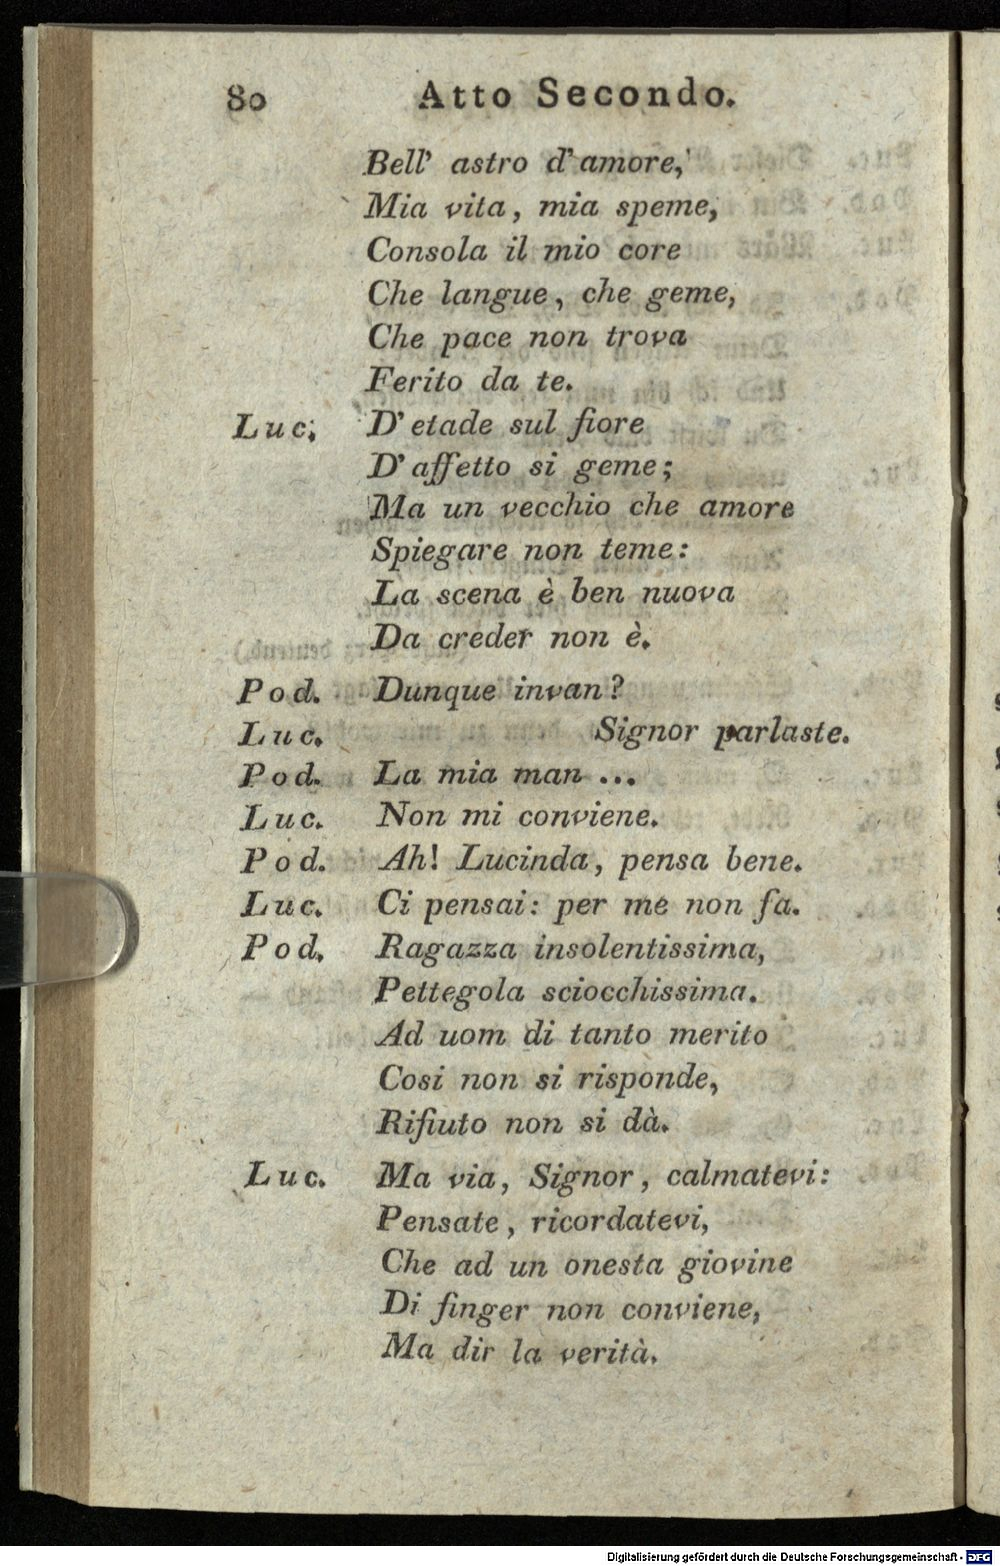 80 Atto Secondo.
Bell' astro d'amore,
Mia vita, mia speme,
Consola il mio core
Che langue, che geme,
Che pace non trova
Ferito da te.
Luc. D'etade sul fiore
D'affetto si geme;
Ma un vecchio che amore
Spiegare non teme:
La scena è ben nuova
Da creder non è.
Pod. Dunque invan?
Luc. Signor parlaste.
Pod. La mia man ...
Luc. Non mi conviene.
Pod. Ah! Lucinda, pensa bene.
Luc. Ci pensai: per me non fa.
Pod. Ragazza insolentissima,
Pettegola sciocchissima.
Ad uom di tanto merito
Cosi non si risponde,
Rifiuto non si dà.
Luc. Ma via, Signor, calmatevi:
Pensate, ricordatevi,
Che ad un onesta giovine
Di finger non conviene,
Ma dir la verità.
Digitalisierung gefördert durch die Deutsche Forschungsgemeinschaft - DFG